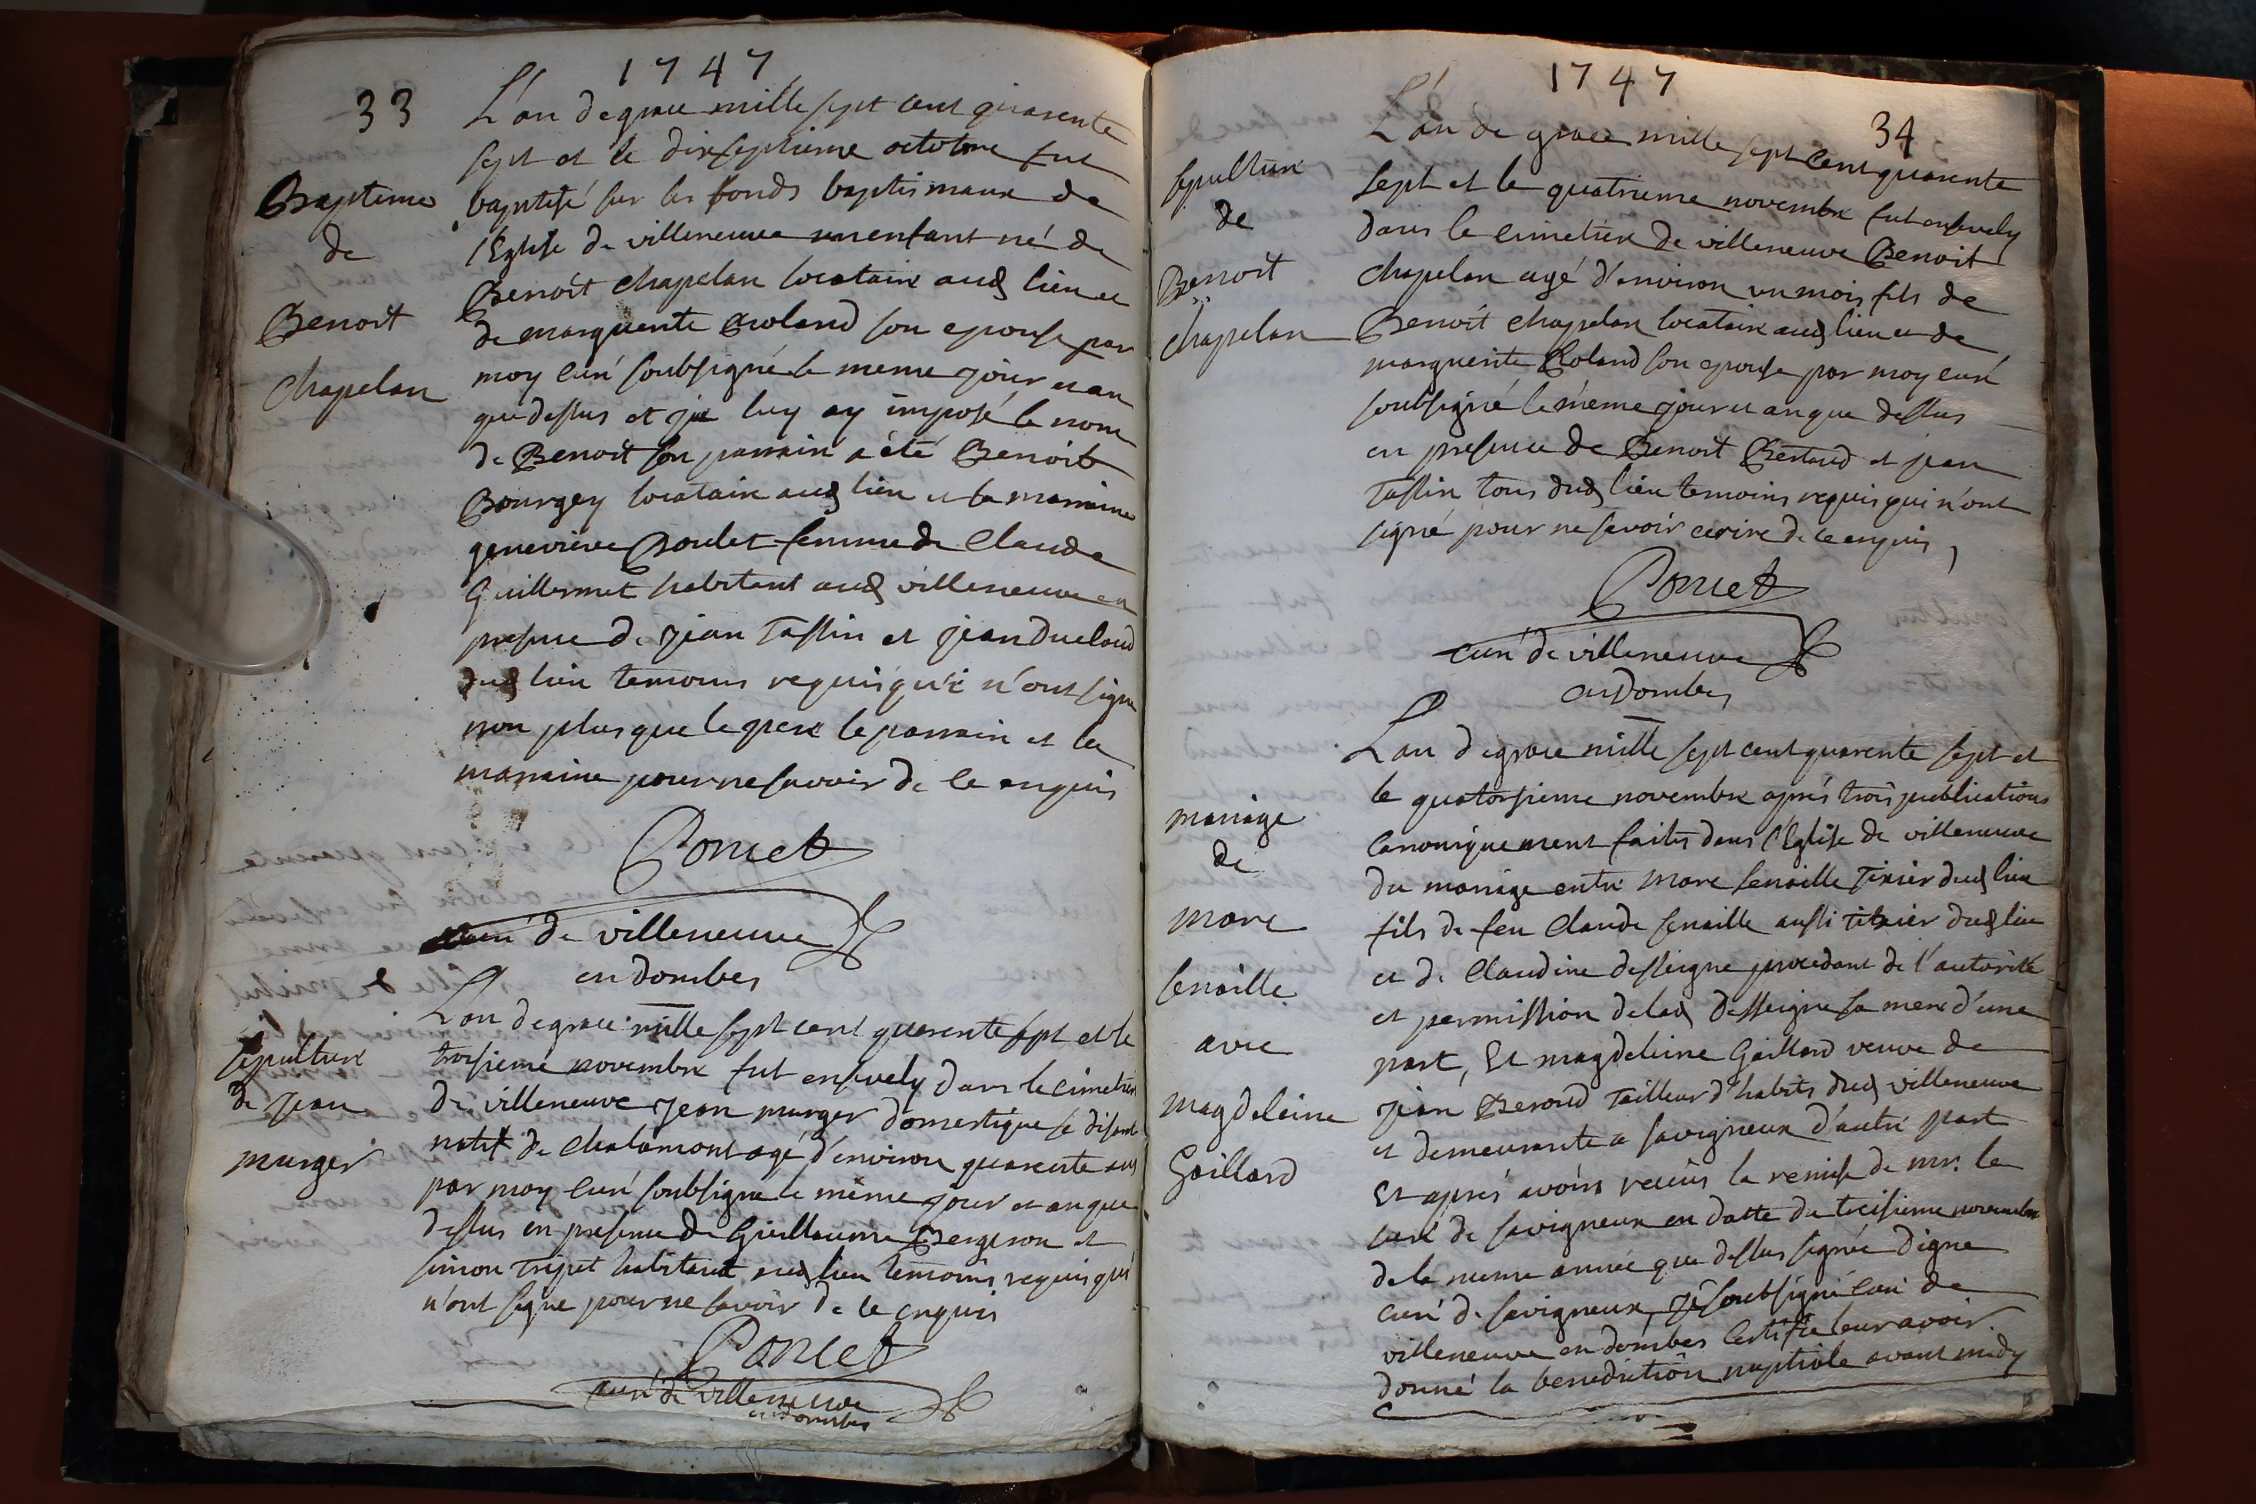 1747
33
L'an de grace mille sept cent quarente
sept et le dixseptieme octobre fut
baptisé sur les fonds baptismaux de
l'Eglise de villeneuve un enfant né de
Benoit chapelan locataire aud lieu et
de marguerite Roland son epouse par
moy curé soubsigné le meme jour et an
que dessus et je luy ay imposé le nom
de Benoit son parrain a été Benoit
Bourgey locataire aud lieu et la marraine
geneviève Boulet femme de Claude
Guillermet habitant aud villeneuve en
presence de jean Tassin et jean Ducloud
dud lieu temoins requis qui n'ont signé
non plus que le pere le parrain et la
marraine pour ne savoir de ce enquis
Poncet
curé de villeneuve
en dombes
Baptême
de
Benoit
chapelan
L'an de grace mille sept cent quarente sept et le
troisieme novembre fut ensevely dans le cimetiere
de villeneuve jean murger domestique se disant
natif de chalamont agé d'environ quarente ans
par moy curé soubsigné le même jour et an que
dessus en presence de Guillaume Bergeron et
simon Tripet habitant aud lieu temoins requis qui
n'ont signé pour ne savoir de ce enquis
Poncet
curé de villeneuve
en dombes
sepulture
de jean
murger
1747
34
L'an de grace mille sept cent quarente
sept et le quatrieme novembre fut ensevely
dans le cimetiere de villeneuve Benoit
chapelan agé d'environ un mois fils de
Benoît chapelan locataire aud lieu et de
marguerite Roland son epouse par moy curé
soubsigné le même jour et an que dessus
en presence de Benoit Bertaud et jean
Tassin tous dud lieu temoins requis qui n'ont
signé pour ne savoir ecrire de ce enquis,
Poncet
curé de villeneuve
en Dombes
sepulture
de
Benoit
chapelan
L'an de grace mille sept cent quarente sept et
le quatorsieme novembre aprés trois publications
canoniquement faites dans l'Eglise de villeneuve
du mariage entre Marc senaille Tixier dud lieu
fils de feu Claude senaille aussi tixier dud lieu
et de Claudine desseigne procedant de l'autorité
et permission de lad Desseigne sa mere d'une
part, Et magdeleine Gaillard veuve de
jean Beroud Tailleur d'habits dud villeneuve
et demeurante a savigneux d'autre part
Et aprés avoir reçeüs la remise de mr. le
curé de savigneux en datte du treisieme novembre
de la meme année que dessus signée Digne
curé de savigneux, je soubsigné curé de
villeneuve en dombes certifie leur avoir
donné la benediction nuptiale avant midy
mariage
de
Marc
senaille
avec
magdeleine
Gaillard